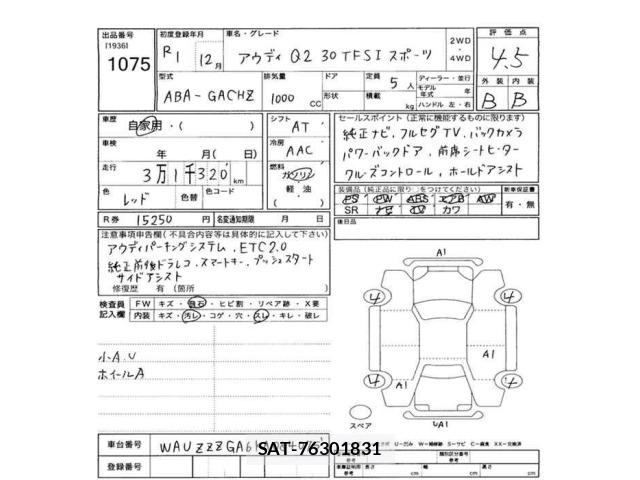 出品番号
[1936]
1075
初度登録年月
R1 12月
車名・グレード
アウディ Q2 30 TFSI スポーツ
2WD
・
4WD
評価点
4.5
型式
ABA-GACHZ
排気量
1000 CC
ドア
形状
定員 5 人
積載 kg
ディーラー・並行
モデル年式 年
ハンドル 左・右
外装 内装
B B
車歴
自家用・( )
シフト
AT
車検
年 月(日)
冷房
AAC
走行
3万1千320km
燃料
ガソリン
軽油
( )
色
レッド
色替
色コード
R券 15250 円
名変通知期限 月 日
セールスポイント (正常に機能するものに限ります)
純正ナビ、フルセグTV、バックカメラ
パワーバックドア、前席シートヒーター
クルーズコントロール、ホールドアシスト
装備品(純正品に限り○をつけてください)
新車保証書
PS PW ABS エアB AW
SR ナビ TV カワ
有・無
後日品
注意事項申告欄(不具合内容等は具体的に記入して下さい)
アウディパーキングシステム、ETC2.0
純正前後ドラレコ、スマートキー、プッシュスタート
サイドアシスト
修復歴 有 (箇所 )
検査員
記入欄
FW キズ・飛石・ヒビ割・リペア跡・X要
内装 キズ・汚レ・コゲ・穴・スレ・キレ・破レ
小A.U
ホイールA
A1
4
4
A1
4
A1
4
UA1
スペア
U…凹み W…補修跡 S…サビ C…腐食 XX…交換済
車台番号
WAUZZZGA6
SAT-76301831
登録番号
類別区分番号
参考
車庫証明用
参考
長さ cm
幅 cm
高さ cm